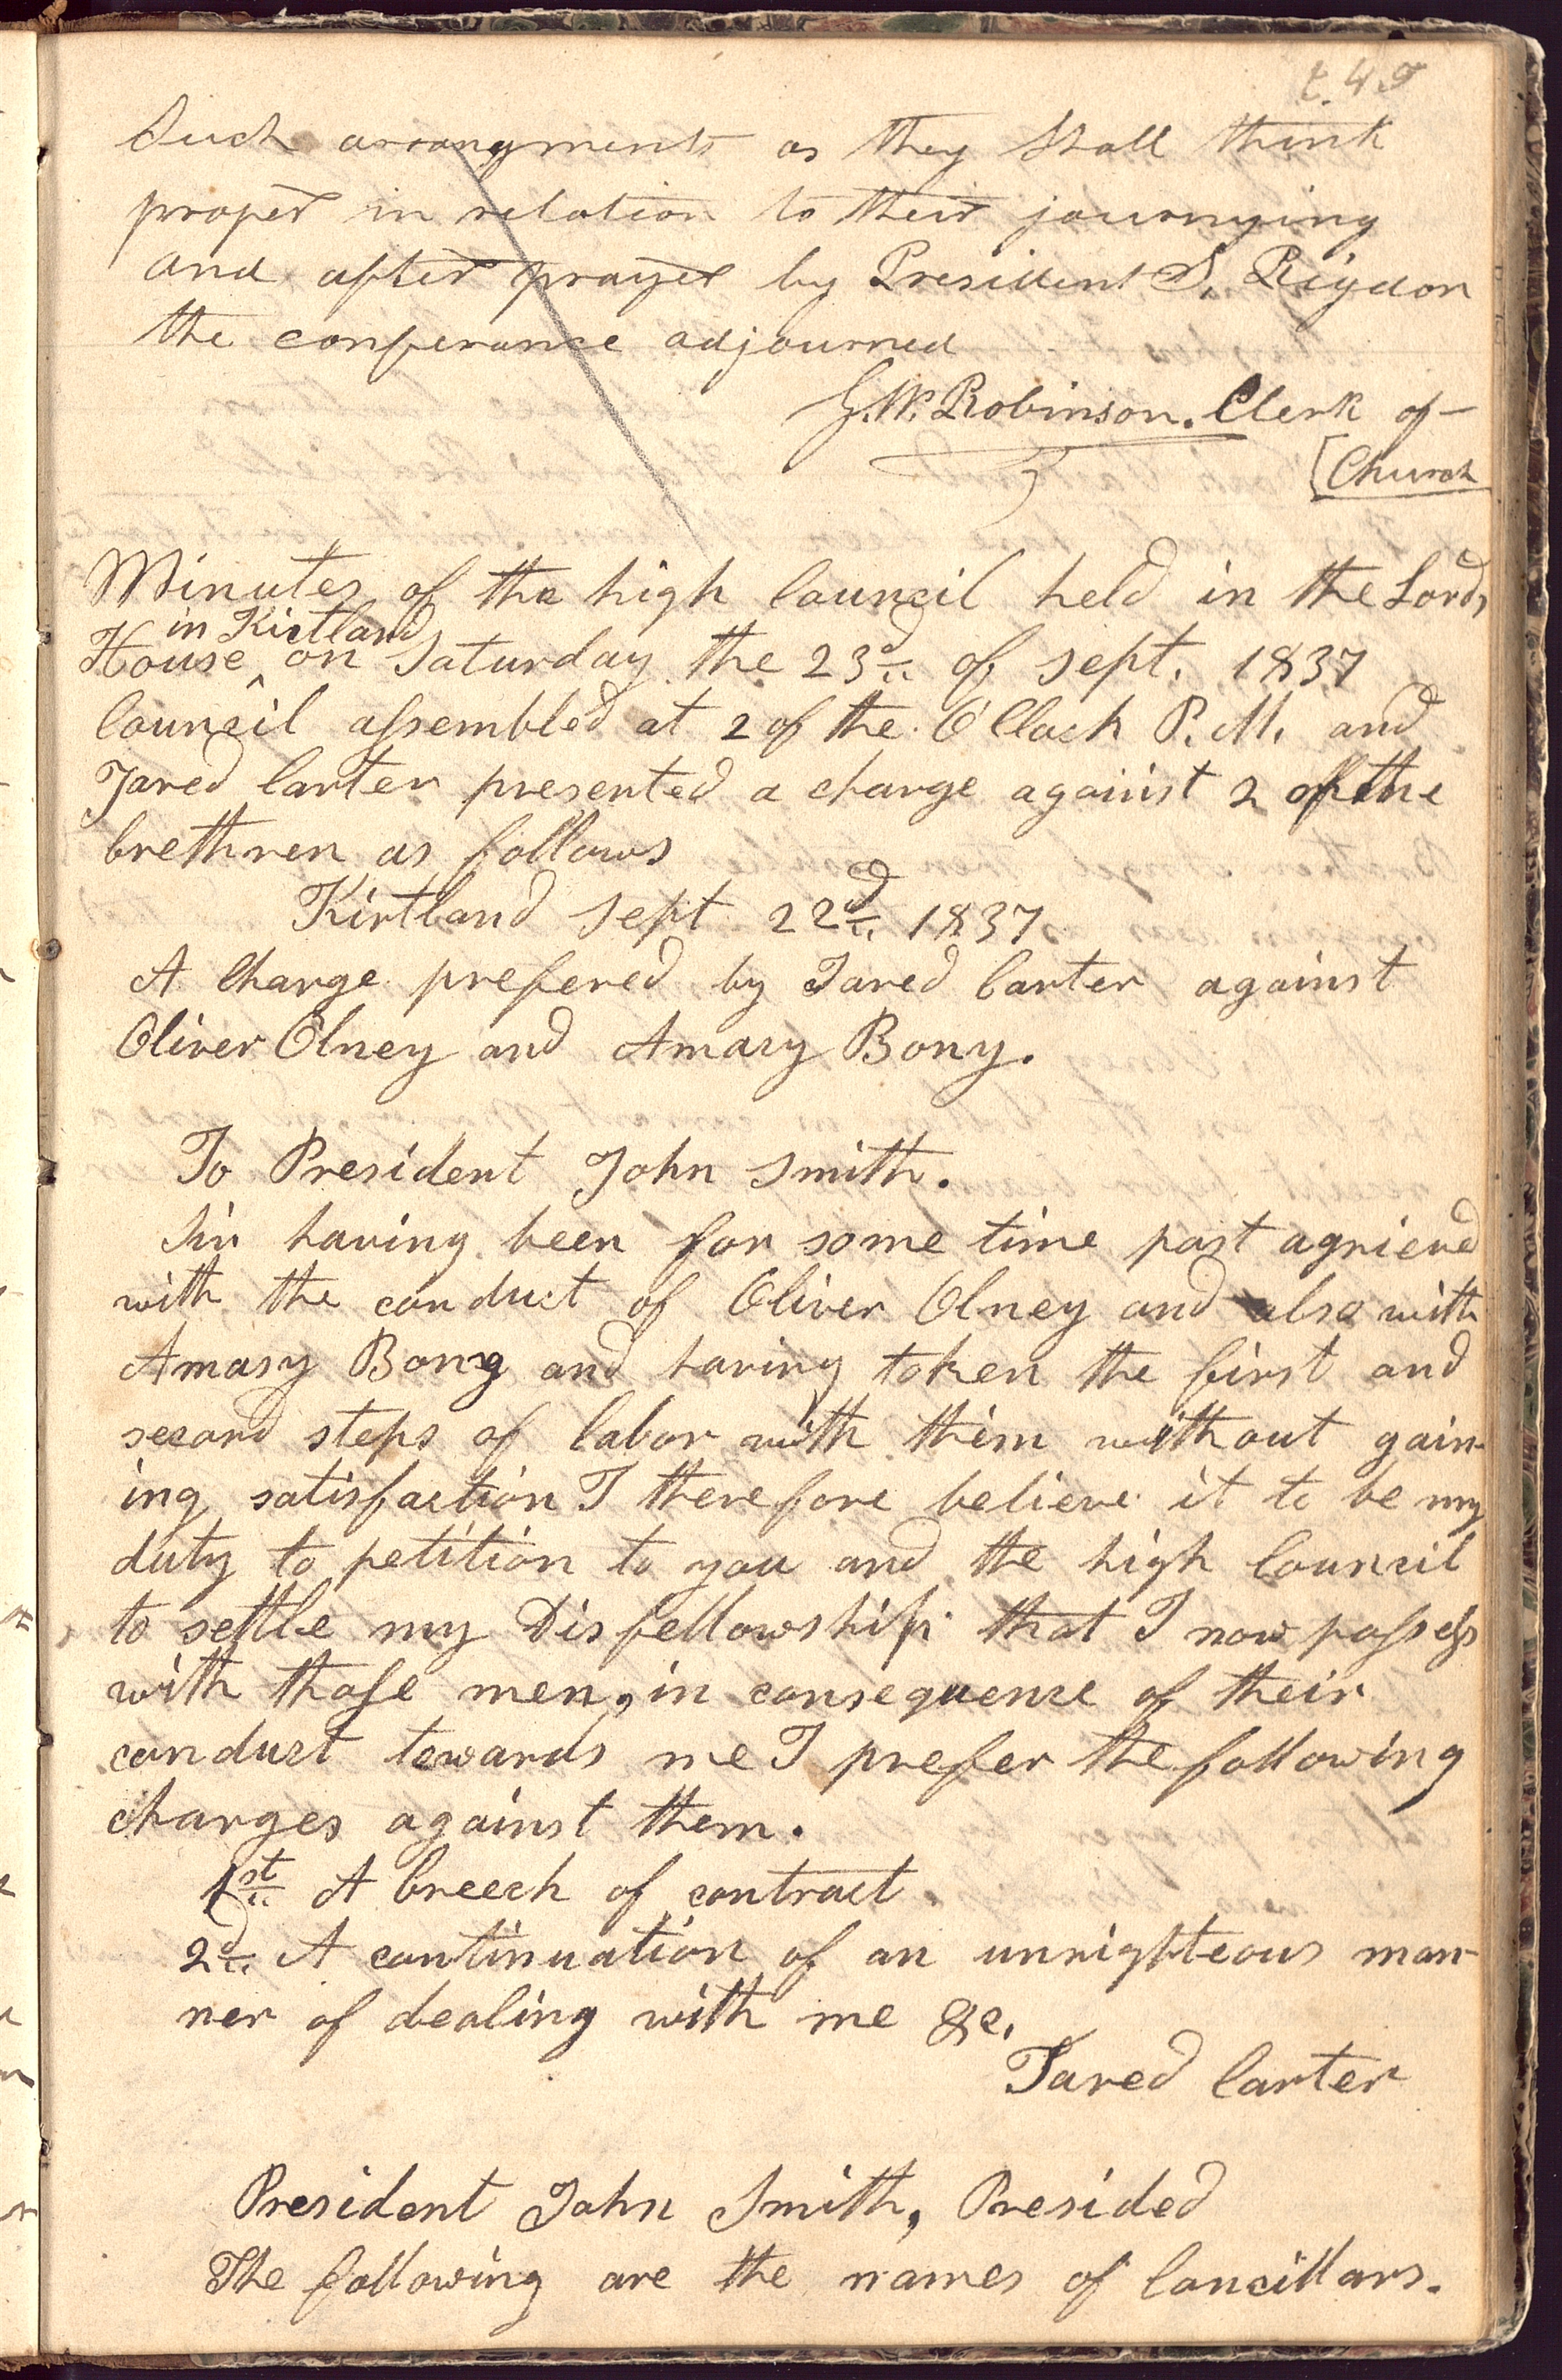 245
Such arrangments as they shall think
proper in relation to their journying
and after prayer by President S. Rigdon
the conferance adjourned
G. W. Robinson. Clerk of—
[Church
Minutes of the high Council held in the Lords
in Kirtland
House ^ on Saturday the 23d of sept. 1837
Council assembled at 2 of the O'Clock P. M. and
Jared Carter presented a charge against 2 of the
brethren as follows
Kirtland sept 22d 1837
A Charge prefered by Jared Carter against
Oliver Olney and Amasy Bony.
To President John Smith.
Sir having been for some time past agrieved
with the conduct of Oliver Olney and also with
Amasy Bony and having taken the first and
second steps of labor with them without gain-
ing satisfaction I therefore believe it to be my
duty to petition to you and the high Council
to settle my Disfellowship that I now possess
with those men, in consequence of their
conduct towards me I prefer the following
charges against them.
1st A breech of contract.
2d A continuation of an unrighteous man-
ner of dealing with me &c.
Jared Carter
President John Smith, Presided
The following are the names of Concillars.